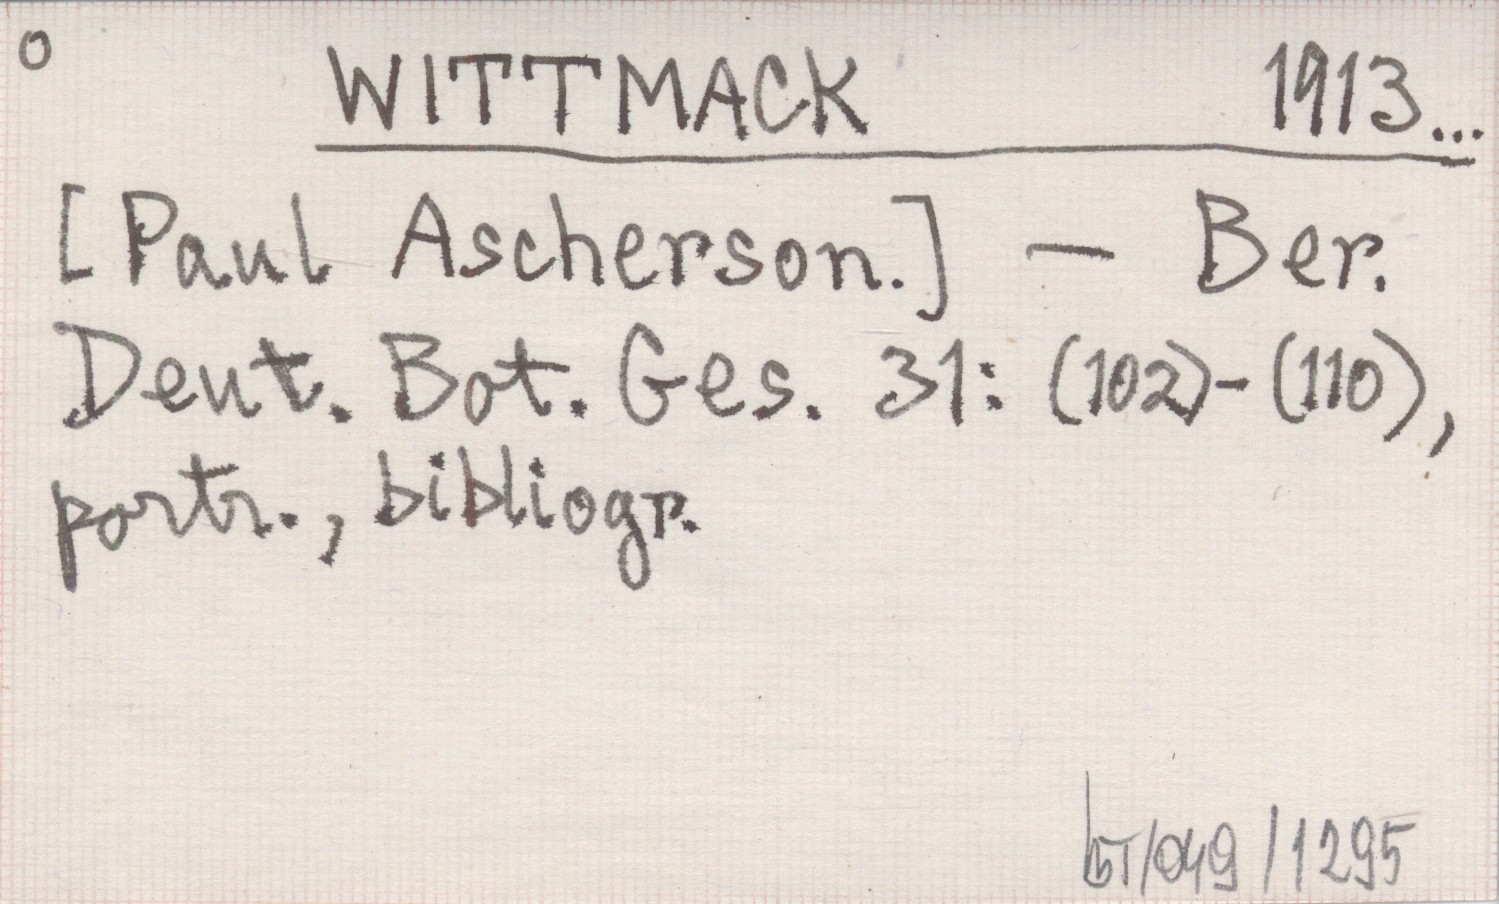 o WITTMACK 1913...
[Paul Ascherson.] — Ber.
Deut. Bot. Ges. 31: (102)-(110),
portr., bibliogr.
BT/049/1295